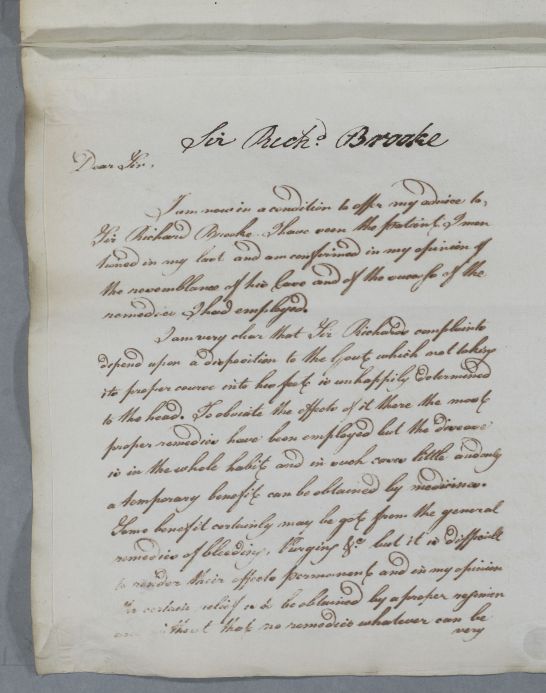 Sir Richd. Brooke
Dear Sir,
I am now in a condition to offer my advice to
Sir Richard Brooke. I have seen the patient I men
tioned in my last and am confirmed in my opinion of
the resemblance of his case and of the success of the
remedies I had employed.
I am very clear that Sir Richards complaints
depend upon a disposition to the Gout which not taking
its proper course into his feet is unhappily determined
to the head. To obviate the effects of it there the most
proper remedies have been employed but the disease
is in the whole habit and in such cases little and only
a temporary benefit can be obtained by medicines.
Some benefit certainly may be got from the general
remedies of bleeding, Purging &c. but it is difficult
to render their effects permanent and in my opinion
certain relief is to be obtained by a proper regimen
and without that no remedies whatever can be
very